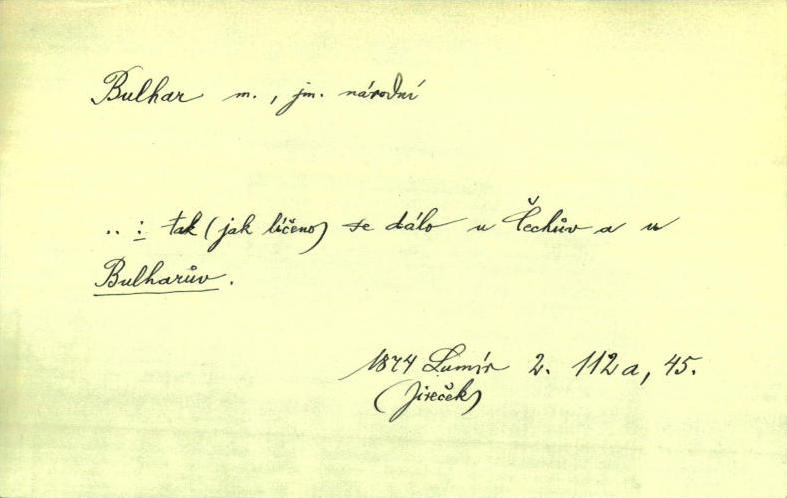 Bulhar m., jm. národní
..: tak (jak líčeno) se dálo u Čechův a u
Bulharův.
1874 Lumír 2. 112a, 45.
(Jireček)